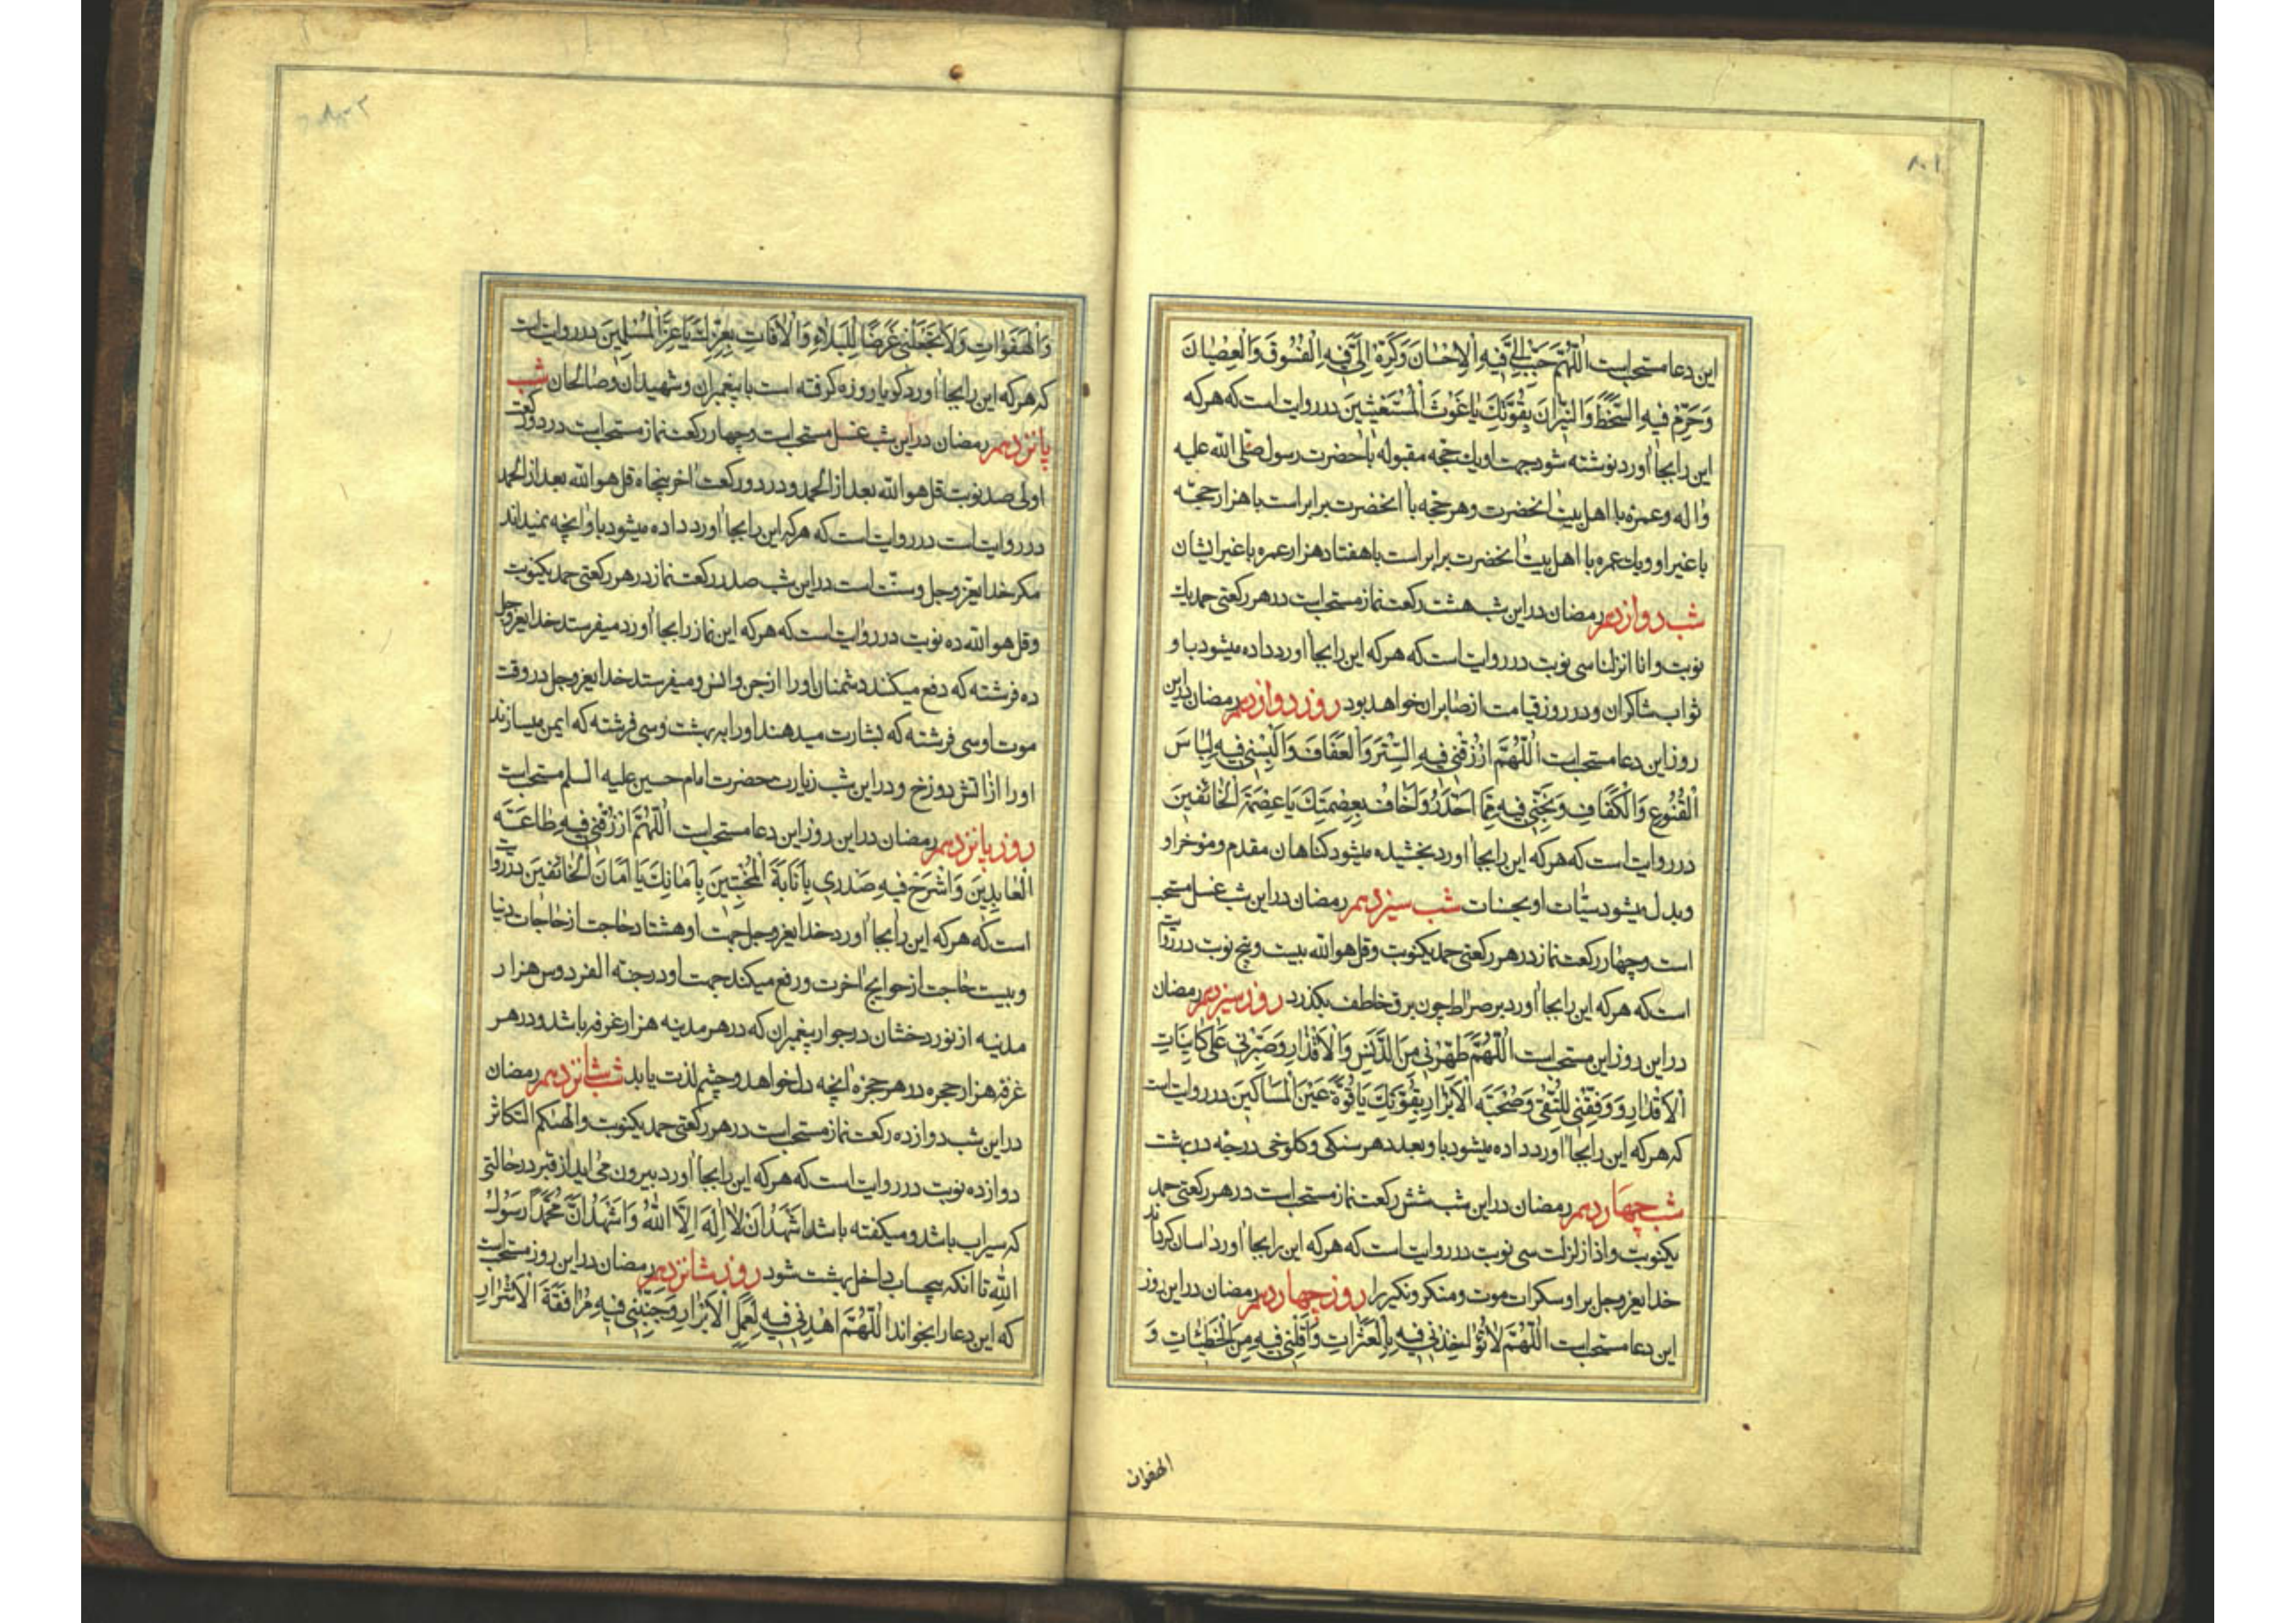 ۸۰۱
این دعا مستحب است اَللّهُمَّ حَبِّبْ اِلَیَّ فیهِ الْاِحْسانَ وَکَرِّهْ اِلَیَّ فیهِ الْفُسُوقَ وَالْعِصْیانَ
وَحَرِّمْ فیهِ السَّخَطَ وَالنّیرانَ بِقُوَّتِكَ یا غَوْثَ الْمُسْتَغیثینَ در روایت است که هر که
این را بجا اورد نوشته شود جهت او یك حجه مقبوله با حضرت رسول صلّی الله علیه
واله و عمره با اهل بیت انحضرت و هر حجه با انحضرت برابر است با هزار حجّه
با غیر او و یك عمره با اهل بیت انحضرت برابر است با هفتاد هزار عمره با غیر ایشان
شب دوازدهم رمضان در این شب هشت رکعت نماز مستحب است در هر رکعتی حمد یك
نوبت و انا انزلنا سی نوبت در روایت است که هر که این را بجا اورد داده میشود با و
ثواب شاکران و در روز قیامت از صابران خواهد بود روز دوازدهم رمضان در این
روز این دعا مستحب است اَللّهُمَّ ارْزُقْنی فیهِ السِّتْرَ وَالْعَفافَ وَاَلْبِسْنی فیهِ لِباسَ
الْقُنُوعِ وَالْکَفافِ وَنَجِّنی فیهِ مِمّا اَحْذَرُ وَاَخافُ بِعِصْمَتِكَ یا عِصْمَةَ الْخائِفینَ
در روایت است که هر که این را بجا اورد بخشیده میشود کناهان مقدم و موخر او
و بدل میشود سیّئات او بحسنات شب سیزدهم رمضان در این شب غسل مستحب
است و چهار رکعت نماز در هر رکعتی حمد یکنوبت و قل هو الله بیست و پنج نوبت در روایت
است که هر که این را بجا اورد بر صراط چون برق خاطف بکذرد روز سیزدهم رمضان
در این روز این مستحب است اَللّهُمَّ طَهِّرْنی مِنَ الدَّنَسِ وَالْاَقْذارِ وَصَبِّرْنی عَلی کائِناتِ
الْاَقْدارِ وَوَفِّقْنی لِلتُّقی وَصُحْبَةِ الْاَبْرارِ بِقُوَّتِكَ یا قُوَّةَ عَیْنِ الْمَساکینَ در روایت است
که هر که این را بجا اورد داده میشود با و بعدد هر سنکی و کلوخی درجه در بهشت
شب چهاردهم رمضان در این شب شش رکعت نماز مستحب است در هر رکعتی حمد
یکنوبت و اذا زلزلت سی نوبت در روایت است که هر که این را بجا اورد اسان کرداند
خدایعزوجل بر او سکرات موت و منکر و نکیر را روز چهاردهم رمضان در این روز
این دعا مستحب است اَللّهُمَّ لا تُؤاخِذْنی فیهِ بِالْعَثَراتِ وَاَقِلْنی فیهِ مِنَ الْخَطیئاتِ وَ
الهفوات
وَالْهَفَواتِ وَلا تَجْعَلْنی غَرَضًا لِلْبَلاءِ وَالْافاتِ بِعِزَّتِكَ یا عِزَّ الْمُسْلِمینَ در روایت است
که هر که این را بجا اورد کویا روزه کرفته است با پیغمبران و شهیدان و صالحان شب
پانزدهم رمضان در این شب غسل مستحب است و چهار رکعت نماز مستحب است در دو رکعت
اولی صد نوبت قل هو الله بعد از الحمد و در دو رکعت اخر پنجاه قل هو الله بعد از الحمد
در روایت است در روایت است که هر که این را بجا اورد داده میشود با و انچه نمیداند
مکر خدایعزوجل و سنّت است در این شب صد رکعت نماز در هر رکعتی حمد یکنوبت
و قل هو الله ده نوبت در روایت است که هر که این نماز را بجا اورد میفرستد خدایعزوجل
ده فرشته که دفع میکنند دشمنان او را از جن و انس و میفرستد خدایعزوجل در وقت
موت او سی فرشته که بشارت میدهند او را به بهشت و سی فرشته که ایمن میسازند
او را از اتش دوزخ و در این شب زیارت حضرت امام حسین علیه السلم مستحب است
روز پانزدهم رمضان در این روز این دعا مستحب است اَللّهُمَّ ارْزُقْنی فیهِ طاعَةَ
الْعابِدینَ وَاشْرَحْ فیهِ صَدْری بِاَنابَةِ الْمُخْبِتینَ بِاَمانِكَ یا اَمانَ الْخائِفینَ در روایت
است که هر که این را بجا اورد خدایعزوجل جهت او هشتاد حاجت از حاجات دنیا
و بیست حاجت از حوایج اخرت و رفع میکند جهت او در جنة الفردوس هزار
مدنیه از نور دخشان در جوار پیغمبران که در هر مدنیه هزار غرفه باشد و در هر
غرفه هزار حجره در هر حجره انچه دل خواهد و چشم لذت یابد شب شانزدهم رمضان
در این شب دوازده رکعت نماز مستحب است در هر رکعتی حمد یکنوبت و الهیکم التکاثر
دوازده نوبت در روایت است که هر که این را بجا اورد بیرون می اید از قبر در حالتی
که سیراب باشد و میکفته باشد اَشْهَدُ اَنْ لا اِلهَ اِلَّا اللهُ وَاَشْهَدُ اَنَّ مُحَمَّدًا رَسُولُ
اللهِ تا انکه بیحساب داخل بهشت شود روز شانزدهم رمضان در این روز مستحب است
که این دعا را بخواند اَللّهُمَّ اهْدِنی فیهِ لِعَمَلِ الْاَبْرارِ وَجَنِّبْنی فیهِ مُرافَقَةَ الْاَشْرارِ